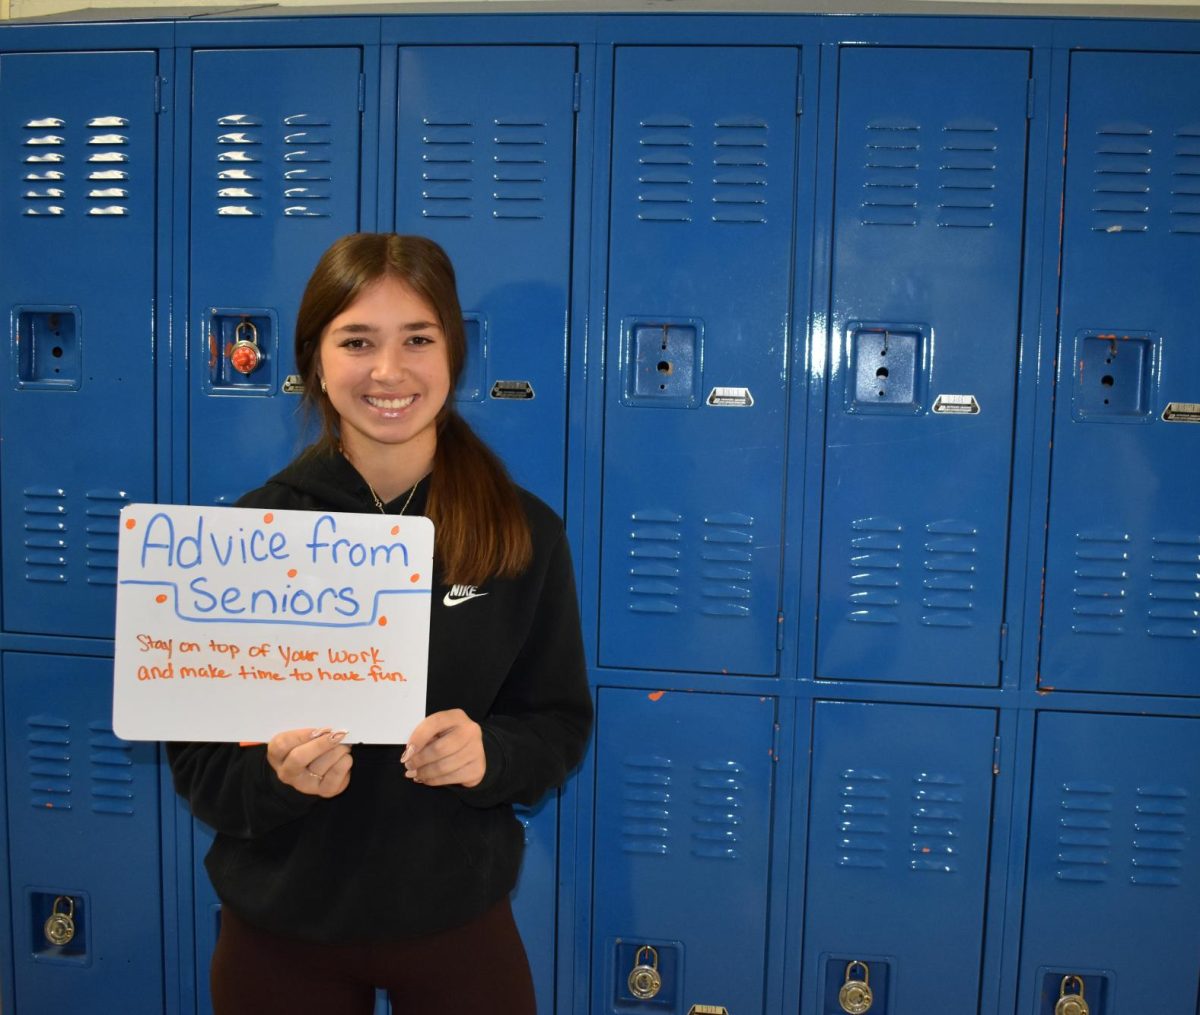 Advice from
Seniors
Stay on top of Your Work
and make time to have fun.
NIKE